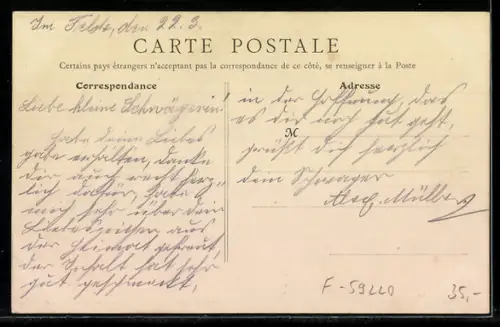 Im Felde, den 22.3.
CARTE POSTALE
Certains pays étrangers n'acceptant pas la correspondance de ce côté, se renseigner à la Poste
Correspondance
Liebe kleine Schwägerin!
habe deine Liebes
gabe erhalten, danke
dir auch recht herz
lich dafür, habe
mich sehr über dein
Liebeszeichen aus
der Heimat gefreut,
der Inhalt hat sehr
gut geschmeckt,
Adresse
in der Hoffnung, das
es dir noch gut geht,
M
grüßt dich herzlich
dein Schwager
Alex. Müller
F-59220
35,-